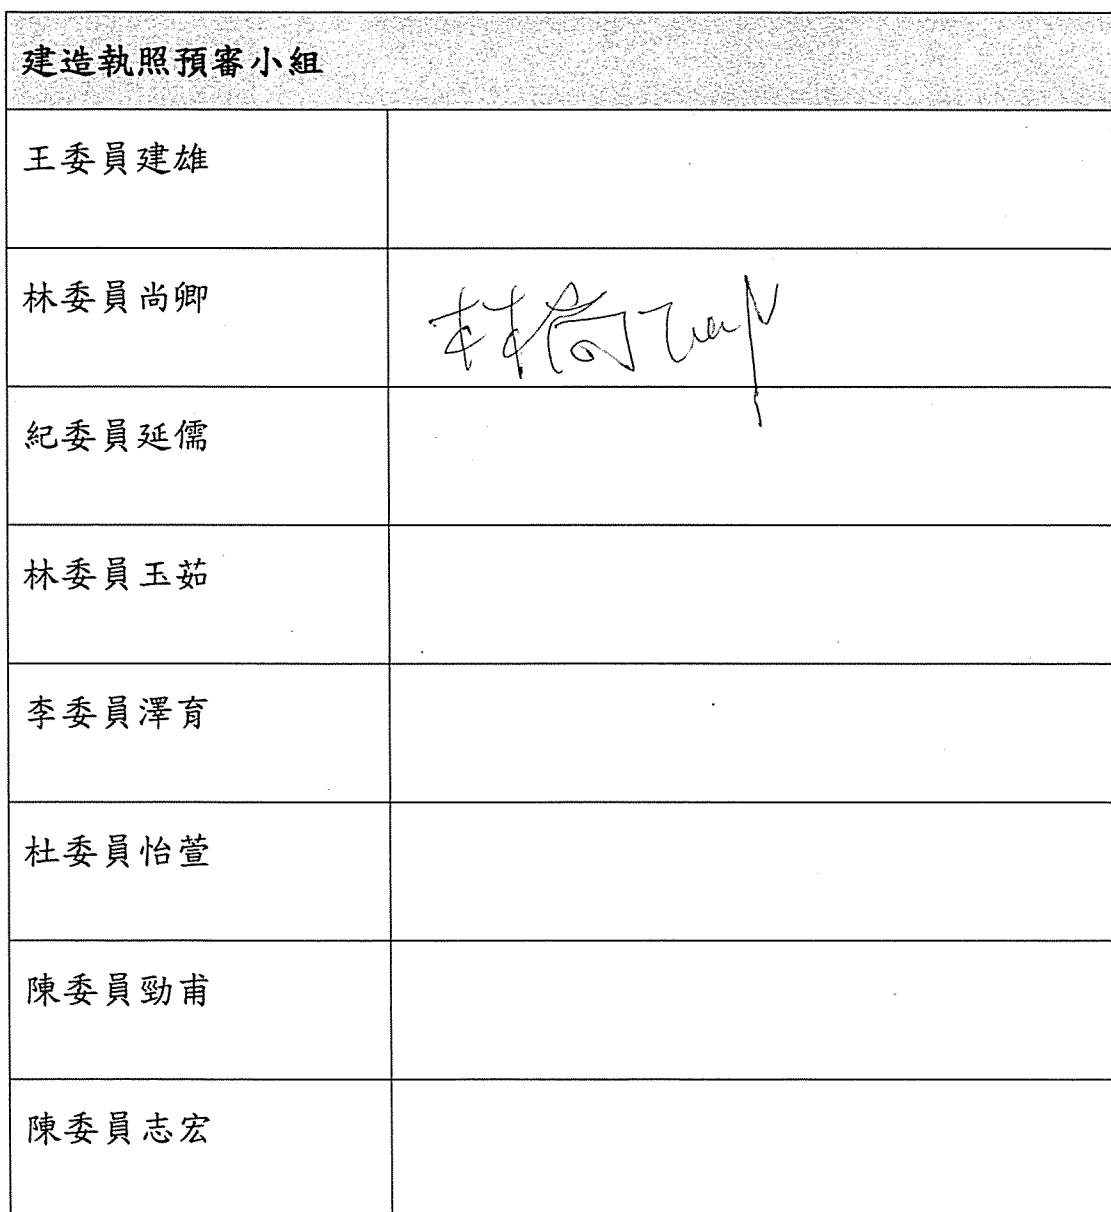 建造執照預審小組
王委員建雄
林委員尚卿
林尚卿
紀委員延儒
林委員玉茹
李委員澤育
杜委員怡萱
陳委員勁甫
陳委員志宏